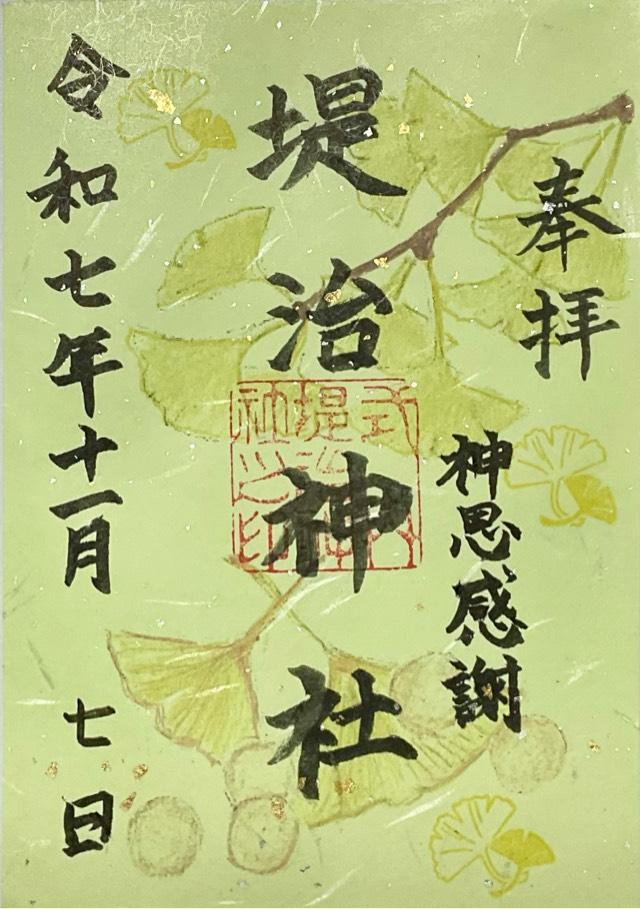 奉拝
神恩感謝
堤治神社
式内
堤治神
社之印
令和七年十一月七日